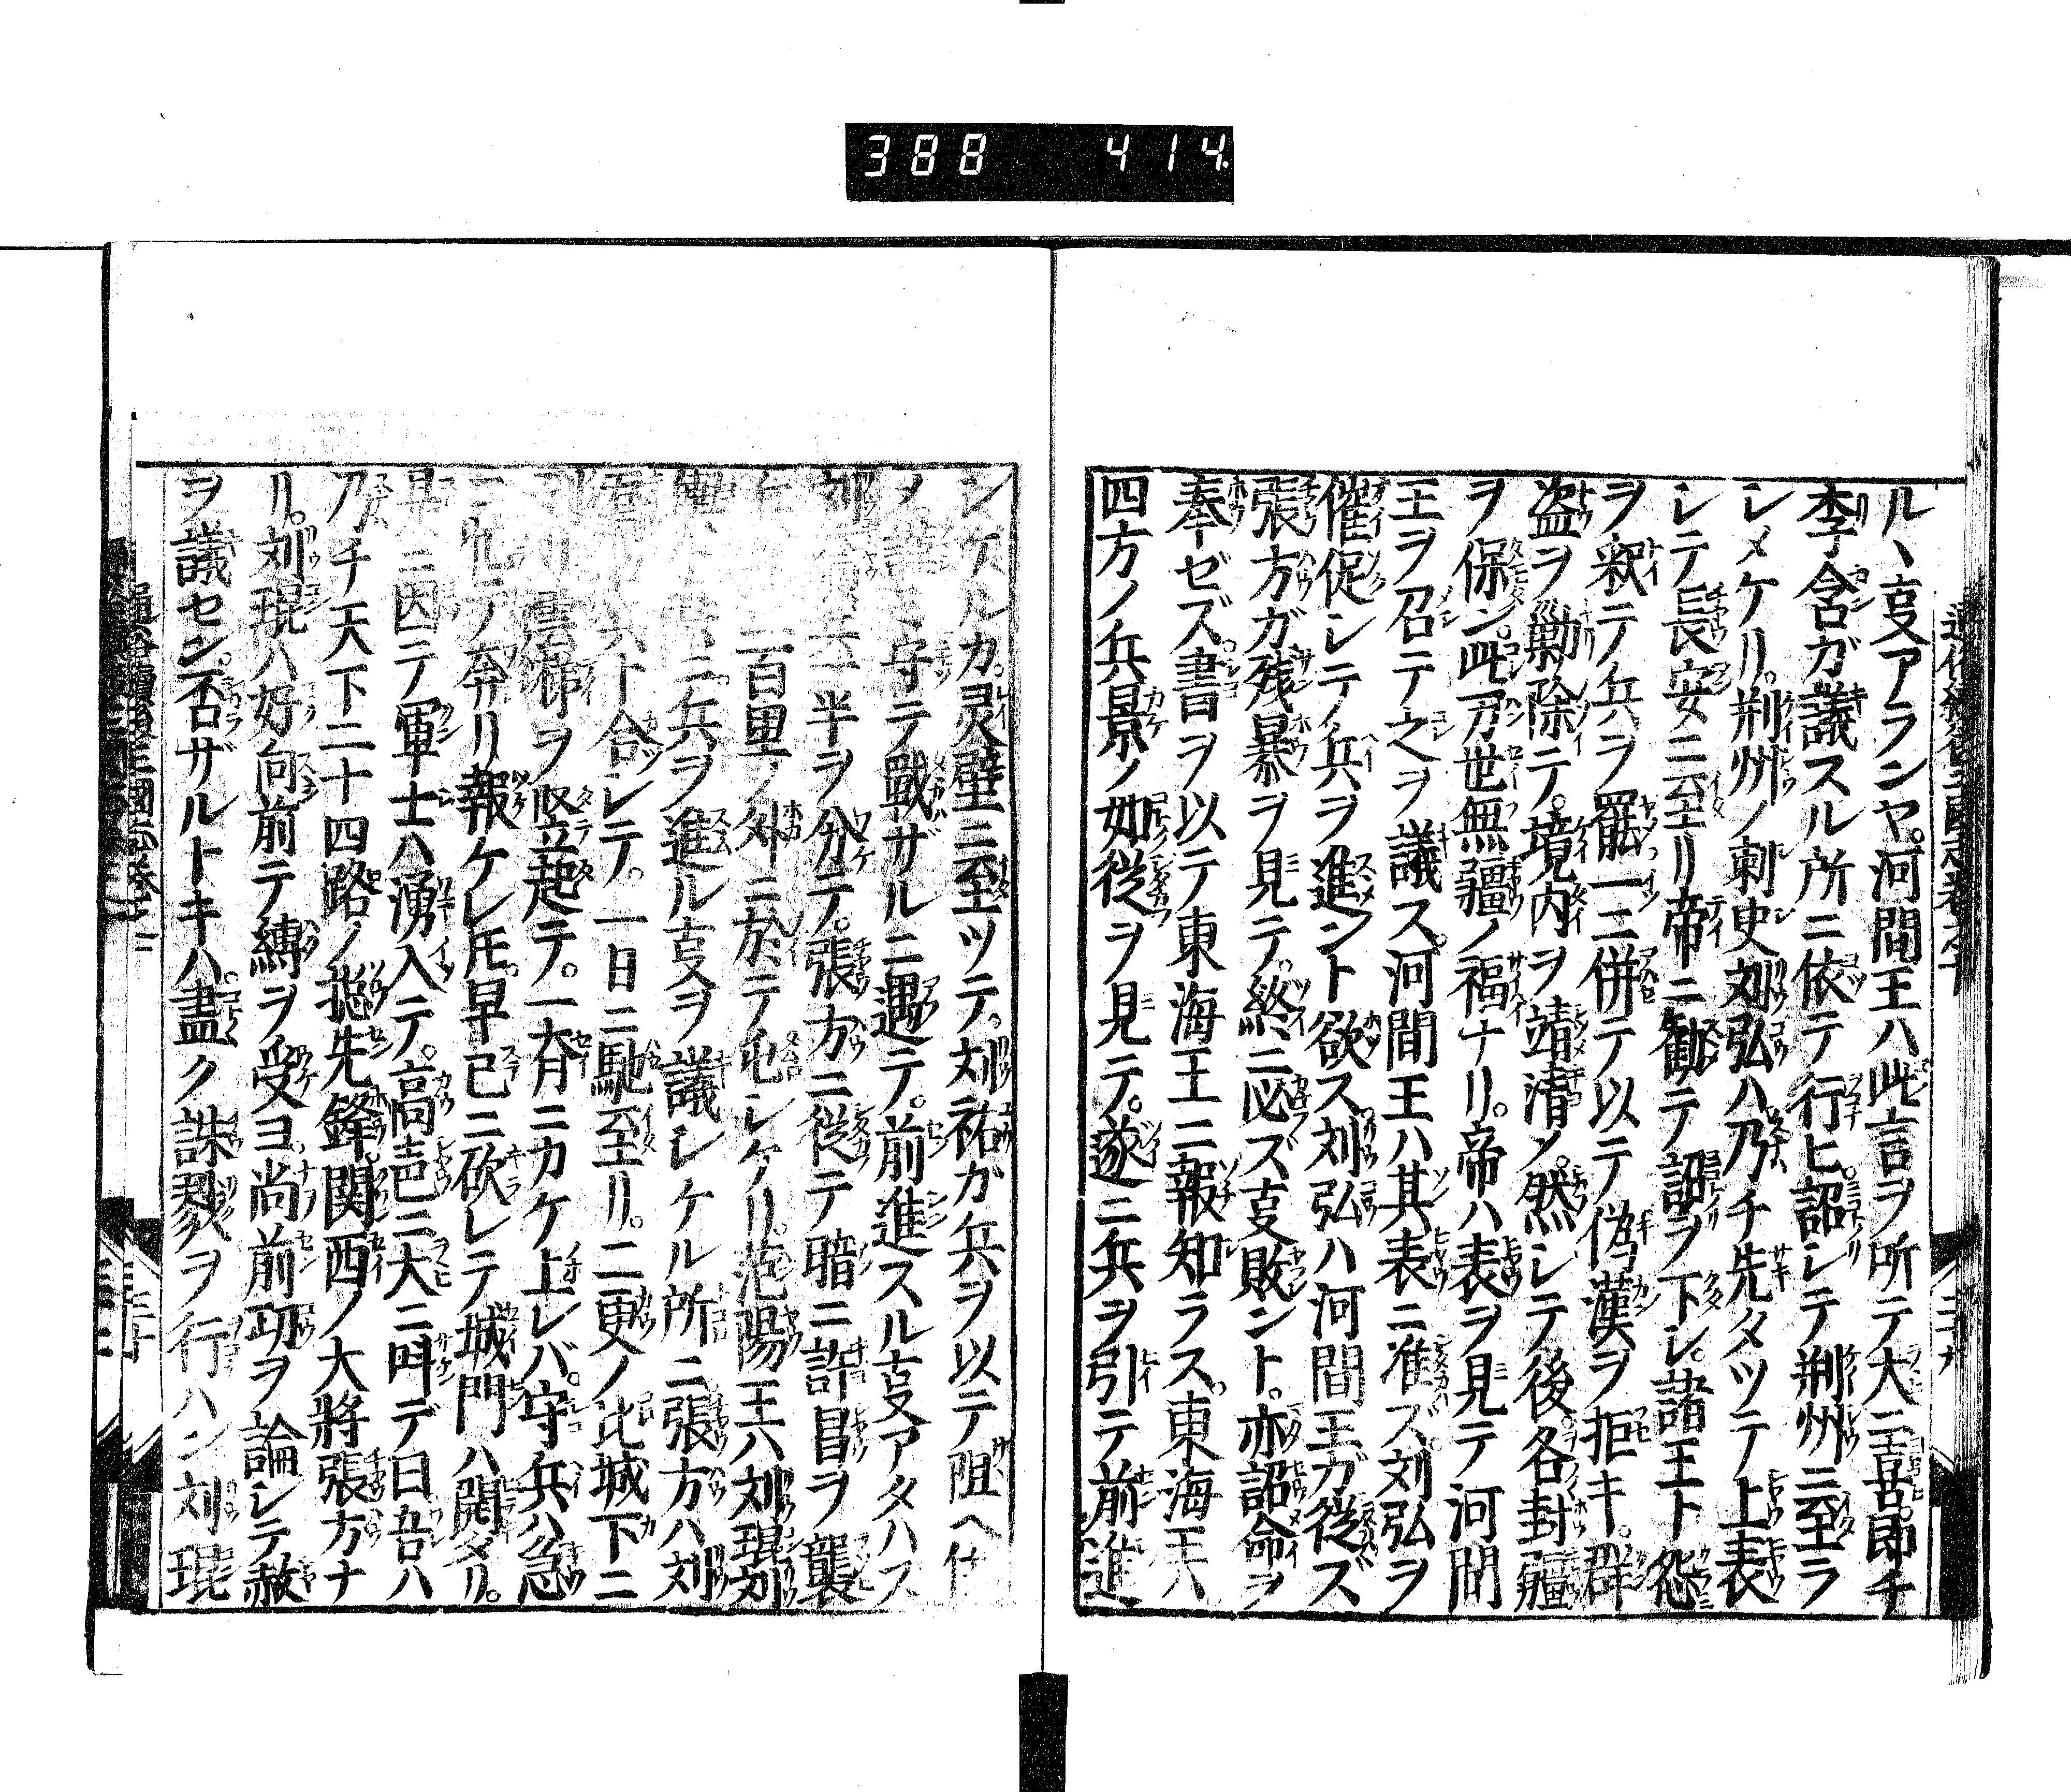 388 414
ル、亊アランヤ。河間王ハ此言ヲ所テ大ニ喜。即チ
李含ガ議スル所ニ依テ行ヒ。詔シテ荊州ニ至ラ
シメケリ。荊州ノ刺史刘弘ハ。乃チ先タツテ上表
シテ長安ニ至リ帝ニ勧テ詔ヲ下シ。諸王ト怨
ヲ釈テ兵ヲ罷一ニ併テ以テ偽漢ヲ拒キ。群
盗ヲ勦除テ。境内ヲ靖清メ。然シテ後各封疆
ヲ保ン。此乃世無疆ノ福ナリ。帝ハ表ヲ見テ河間
王ヲ召テ之ヲ議ス。河間王ハ其表ニ准ズ。刘弘ヲ
催促シテ兵ヲ進ント欲ス刘弘ハ河間王ガ従ズ
張方ガ残暴ヲ見テ。終ニ必ズ亊敗ント。亦詔命ヲ
奉ゼズ。書ヲ以テ東海王ニ報知ラス。東海王ハ
四方ノ兵景ノ如従ヲ見テ。遂ニ兵ヲ引テ前進
シケルカ。灵壁ニ至ツテ。刘祐ガ兵ヲ以テ阻ヘ
守テ戰ザルニ遇テ。前進スル亊アタハス
半ヲ分テ。張方ニ従テ暗ニ許昌ヲ襲
二百里ノ外ニ於テ屯シケリ。范陽王ハ刘琨刘
ニ兵ヲ進ル亊ヲ議シケル所ニ張方ハ刘
ト合シテ。一日ニ馳至リ。二更ノ比城下ニ
雲梯ヲ竪起テ。一斉ニカケ上レバ。守兵ハ急
テ奔リ報ケレ𪜈。早已ニ砍レテ城門ハ開タリ。
ニ因テ軍士ハ湧入テ。高声ニ大ニ叫デ曰吾ハ
乃チ天下二十四路ノ搃先鋒。関西ノ大將張方ナ
リ。刘琨ハ好向前テ縛ヲ受ヨ。尚前功ヲ論シテ赦
ヲ議セン。否ザルトキハ。盡ク誅戮ヲ行ハン刘琨